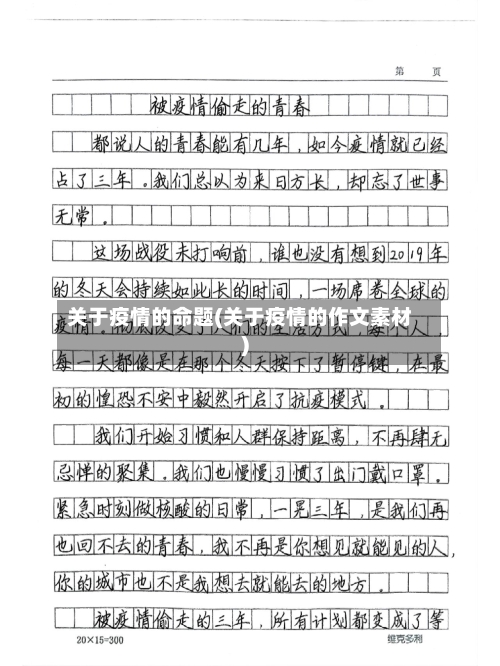 第 页
被疫情偷走的青春
都说人的青春能有几年，如今疫情就已经
占了三年。我们总以为来日方长，却忘了世事
无常。
这场战役未打响前，谁也没有想到2019年
的冬天会持续如此长的时间，一场席卷全球的
关于疫情的命题(关于疫情的作文素材
)
疫情。彻底改变了人们的生活方式，每个人
每一天都像是在那个冬天按下了暂停键，在最
初的惶恐不安中毅然开启了抗疫模式。
我们开始习惯和人群保持距离，不再肆无
忌惮的聚集。我们也慢慢习惯了出门戴口罩。
紧急时刻做核酸的日常，一晃三年，是我们再
也回不去的青春，我不再是你想见就能见的人，
你的城市也不是我想去就能去的地方。
被疫情偷走的三年，所有计划都变成了等
20×15=300 维克多利